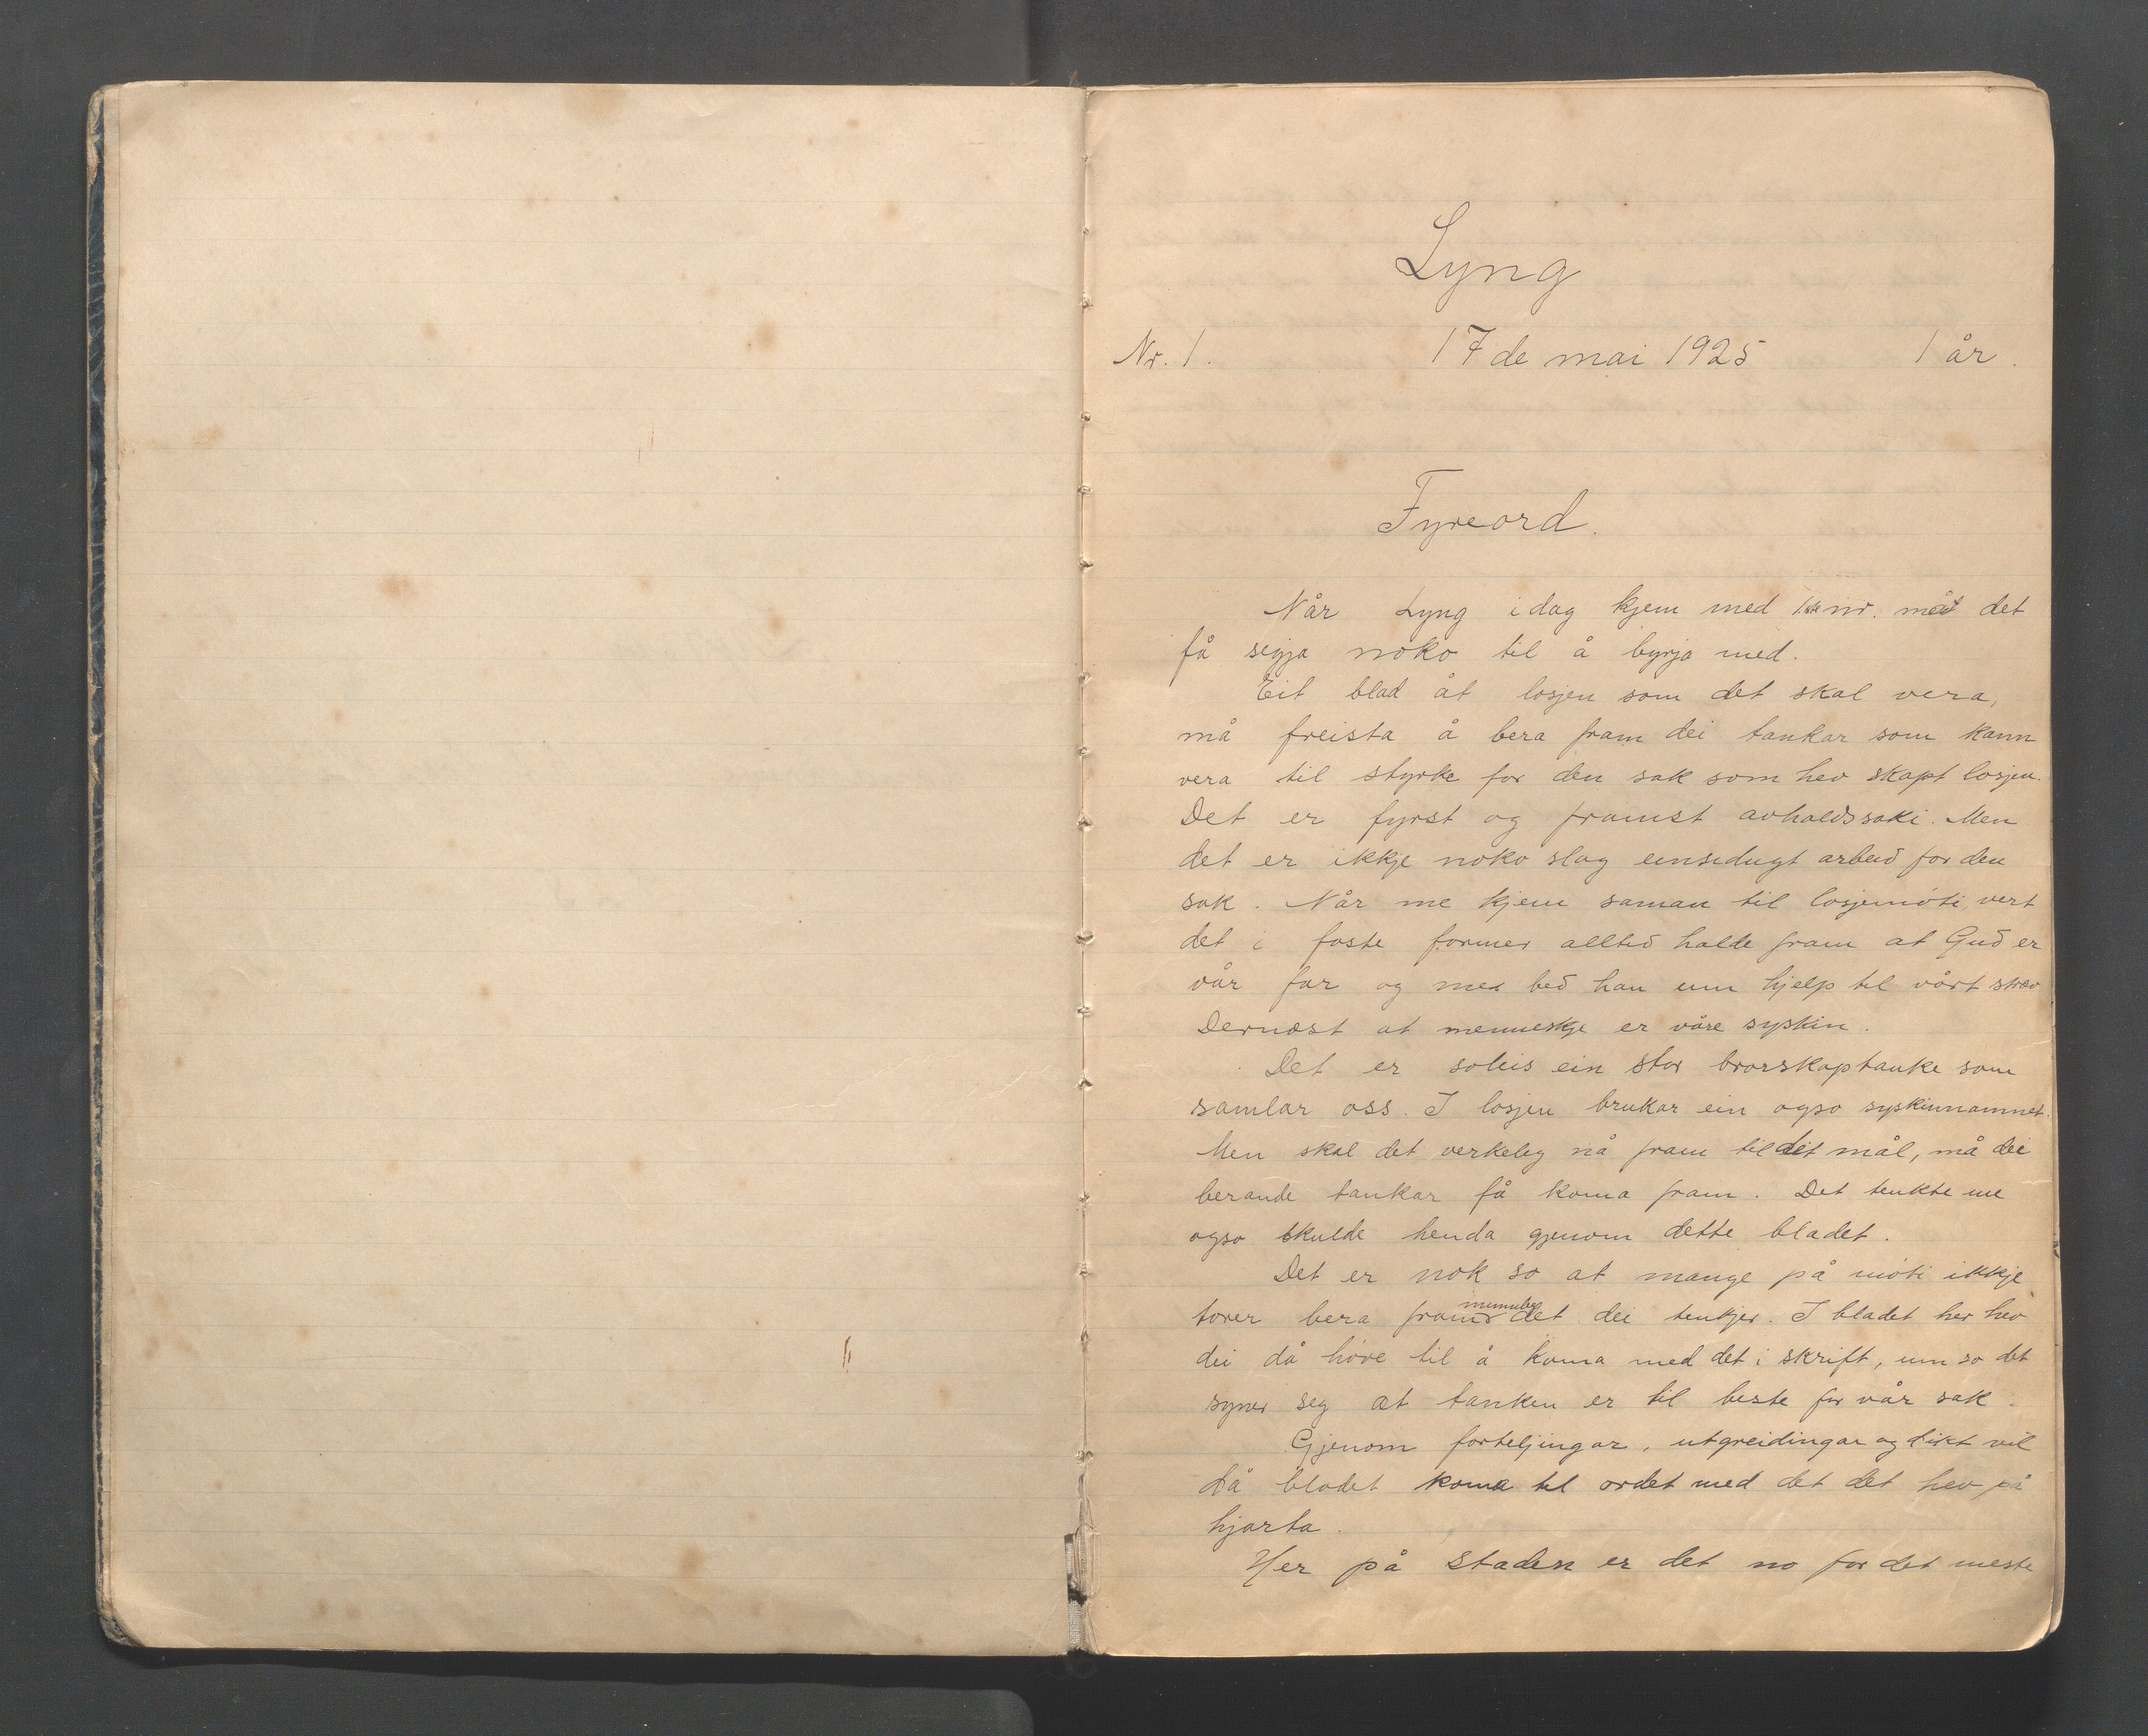 Lyng
Nr. 1. 17de mai 1925 1 år.
Fyreord.
Når Lyng idag kjem med 1ste nr. må det
få segja noko til å byrja med.
Eit blad åt losjen som det skal vera,
må freista å bera fram dei tankar som kann
vera til styrke for den sak som hev skapt losjen.
Det er fyrst og framst avhaldssaki. Men
det er ikkje noko slag einsidugt arbeid for den
sak. Når me kjem saman til losjemöti, vert
det i faste former alltid halde fram at Gud er
vår far og me bed han um hjelp til vårt stræv
Dernæst at menneskje er våre syskin.
Det er soleis ein stor brorskaptanke som
samlar oss. I losjen brukar ein ogso syskinnamnet.
Men skal det verkeleg nå fram til det mål, må dei
berande tankar få koma fram. Det tenkte me
ogso skulde henda gjenom dette bladet.
Det er nok so at mange på möti ikkje
torer bera fram munnleg det dei tenkjer. I bladet her hev
dei då höve til å koma med det i skrift, um so det
syner seg at tanken er til beste for vår sak.
Gjenom forteljingar, utgreidingar og dikt vil
då bladet koma til ordet med det det hev på
hjarta.
Her på staden er det no for det meste